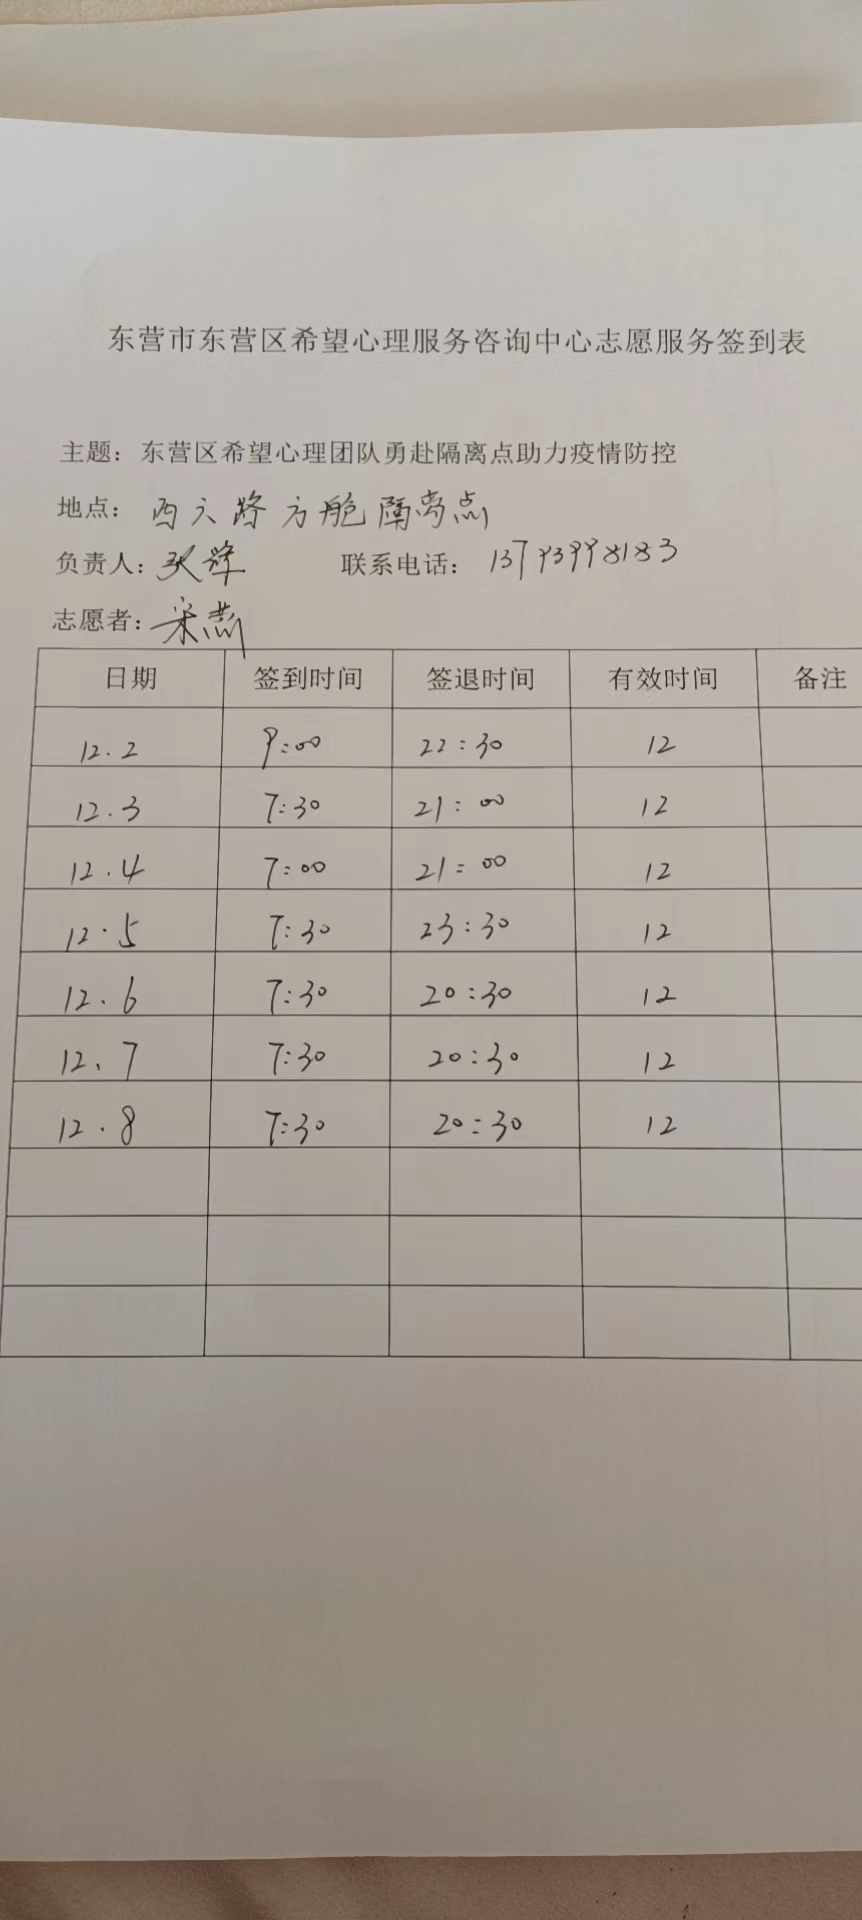 东营市东营区希望心理服务咨询中心志愿服务签到表
主题：东营区希望心理团队勇赴隔离点助力疫情防控
地点：西六路方舱隔离点
负责人： 联系电话：
志愿者：宋燕
日期 签到时间 签退时间 有效时间 备注
12.2 9:00 22:30 12
12.3 7:30 21:00 12
12.4 7:00 21:00 12
12.5 7:30 23:30 12
12.6 7:30 20:30 12
12.7 7:30 20:30 12
12.8 7:30 20:30 12